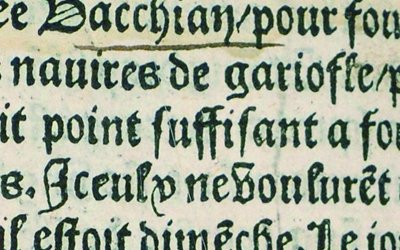 ee Bacchian/pour four
s navires de gariofle/p
it point suffisant a fou
s. Iceulx ne voulurēt
il estoit dimēche. Le io